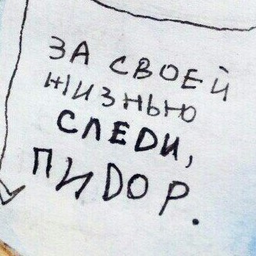 ЗА СВОЕЙ
ЖИЗНЬЮ
СЛЕДИ,
ПИДОР.